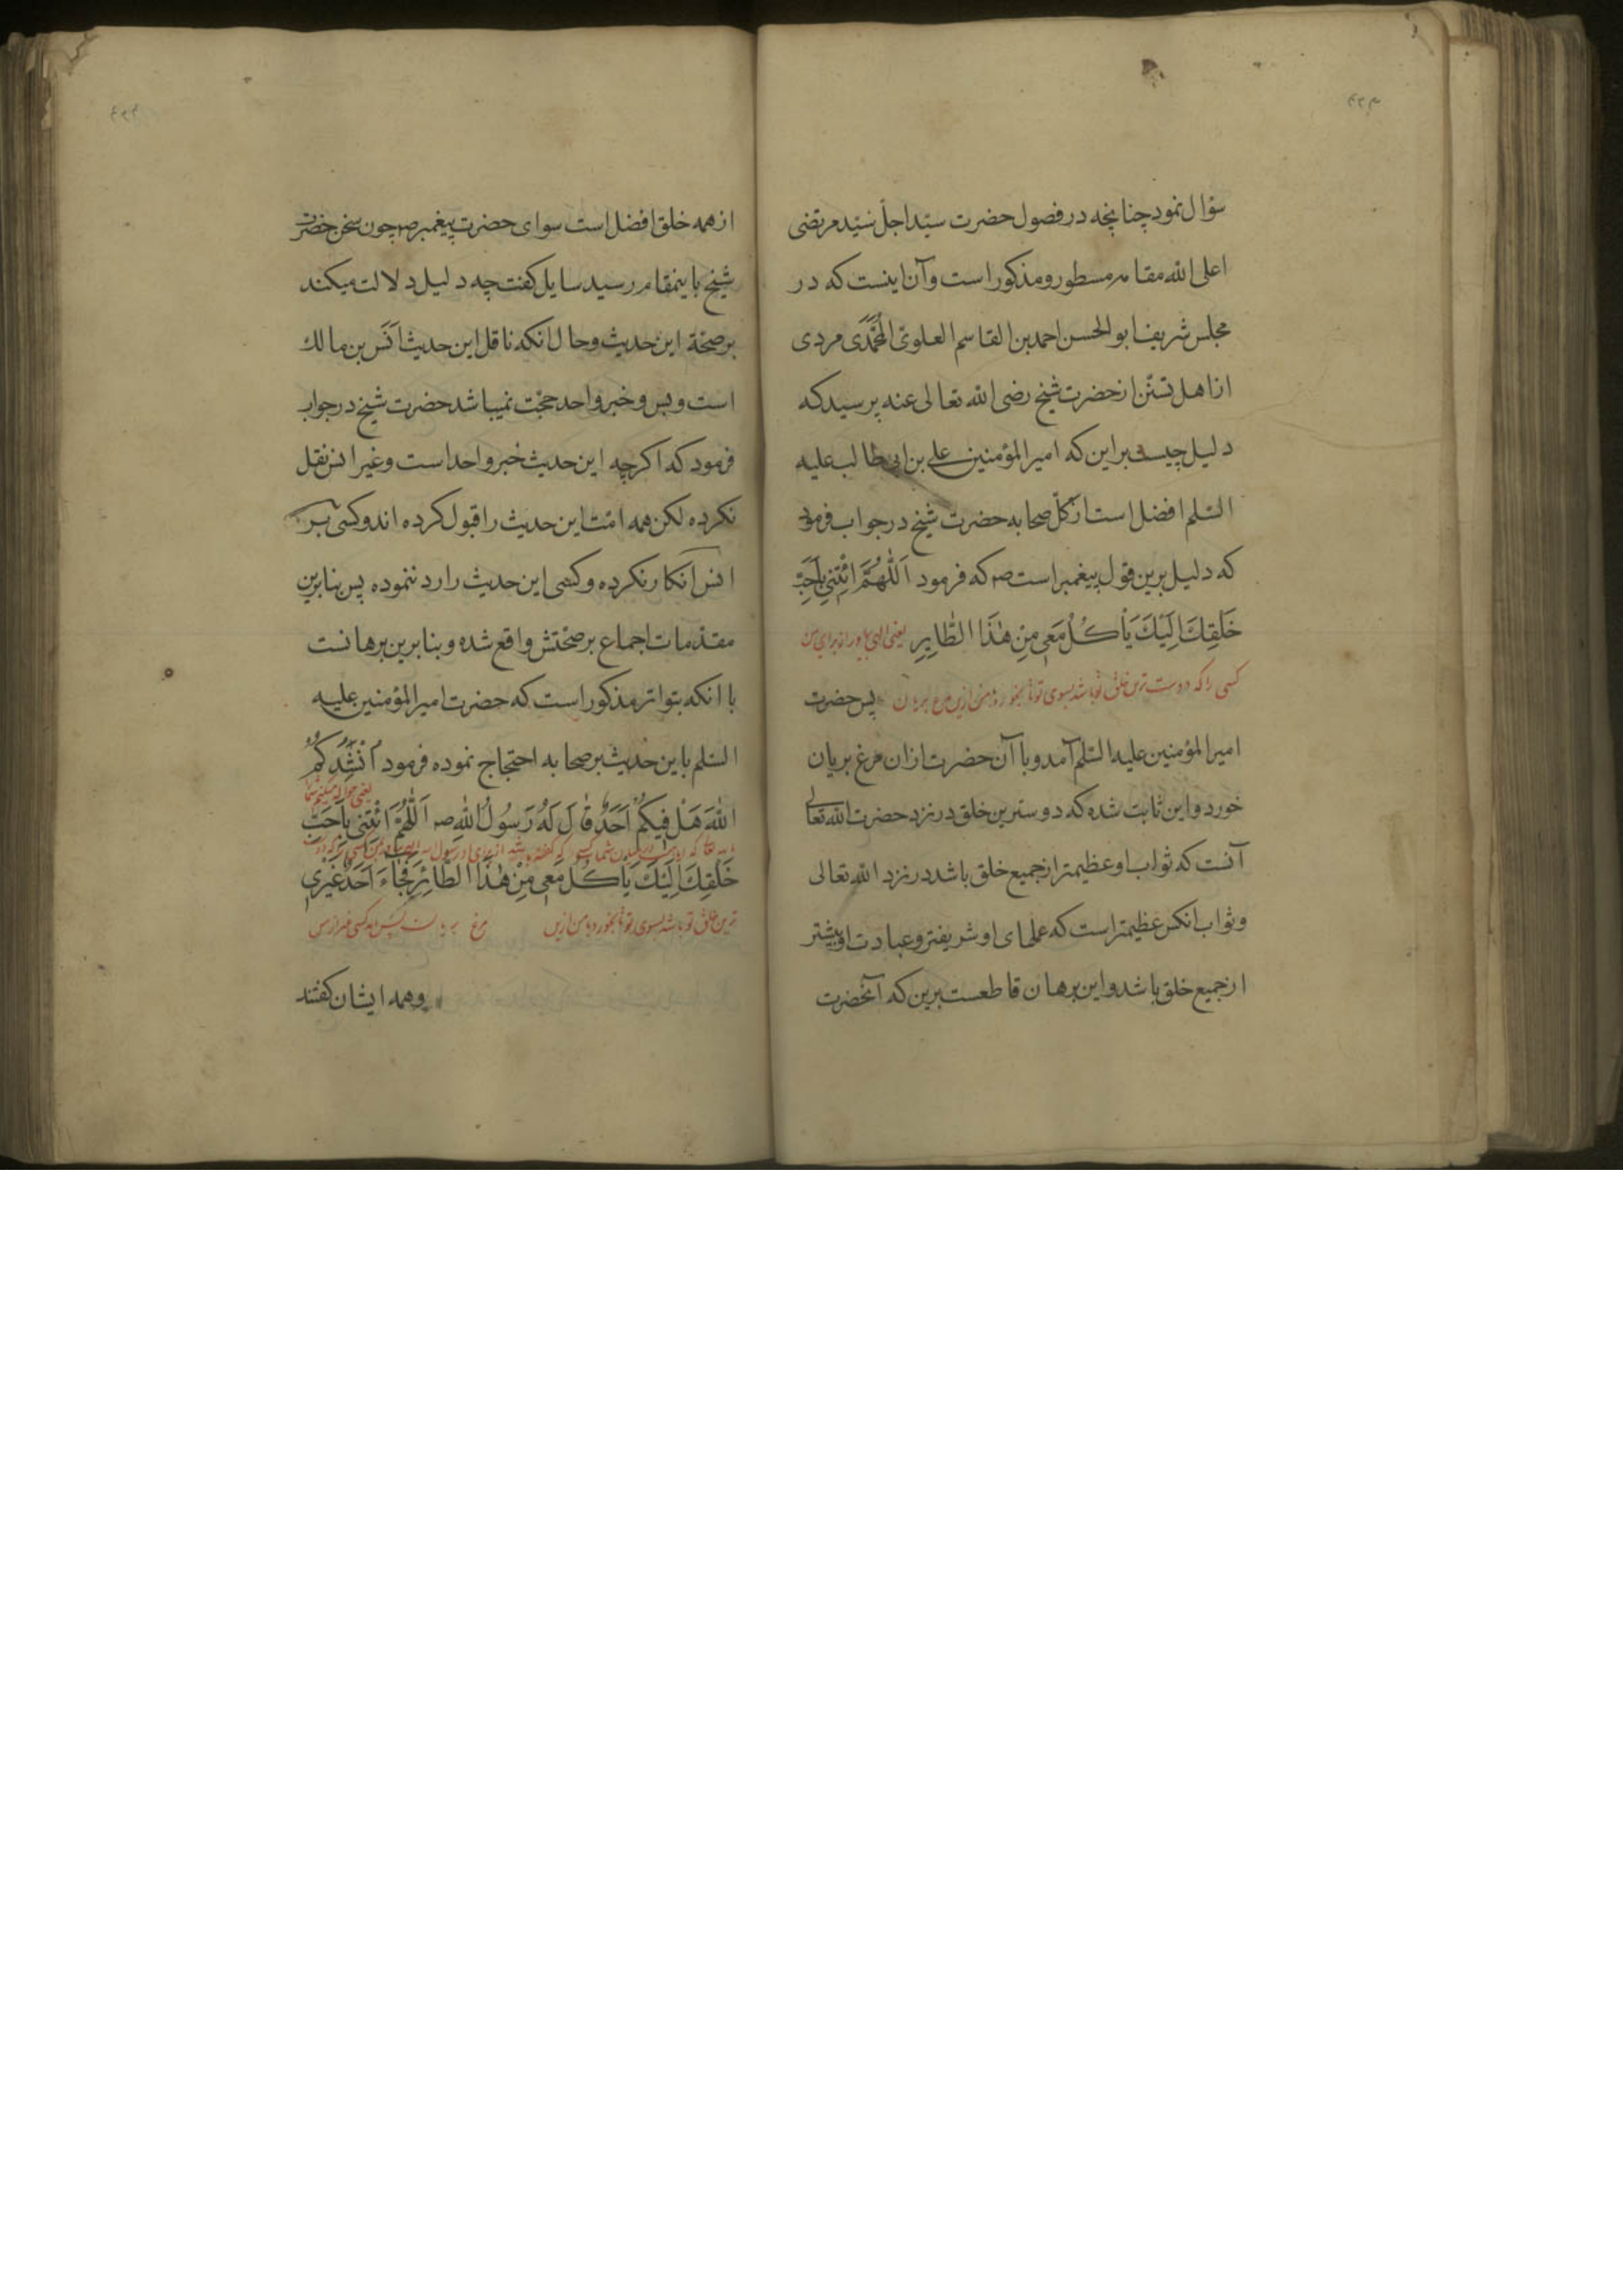 سؤال نمود چنانچه در فصول حضرت سیّد اجلّ سیّد مرتضی
اعلی الله مقامه مسطور و مذکور است و آن اینست که در
مجلس شریف ابو الحسن احمد بن القاسم العلویّ المُحَمَّدی مردی
از اهل تسنّن از حضرت شیخ رضی الله تعالی عنه پرسید که
دلیل چیست براین که امیر المؤمنین علی بن ابی طالب علیه
السّلم افضل است از کلّ صحابه حضرت شیخ در جواب فرمود
که دلیل برین قول پیغمبر است صم که فرمود اَللّٰهُمَّ ائْتِنِی بِاَحَبِّ
خَلْقِكَ اِلَیْكَ یَاْکُلُ مَعِی مِنْ هٰذَا الطَّایِرِ یعنی الهی بیاور از برای من
کسی را که دوست ترین خلق تو باشد بسوی تو تا بخورد با من ازین مرغ بریان پس حضرت
امیر المؤمنین علیه السّلم آمد و با آن حضرت ازان مرغ بریان
خورد و این ثابت شده که دوسترین خلق در نزد حضرت الله تعالی
آنست که ثواب او عظیمتر از جمیع خلق باشد در نزد الله تعالی
و ثواب انکس عظیمتر است که عملهای او شریفتر و عبادت او بیشتر
از جمیع خلق باشد و این برهان قاطعست برین که آنحضرت
از همه خلق افضل است سوای حضرت پیغمبر صم چون سخن حضرت
شیخ باینمقام رسید سایل کفت چه دلیل دلالت میکند
بر صحّة این حدیث و حال انکه ناقل این حدیث اَنَس بن مالك
است و بس و خبر واحد حجّت نمیباشد حضرت شیخ در جواب
فرمود که اکرچه این حدیث خبر واحد است و غیر انس نقل
نکرده لکن همه امّت این حدیث را قبول کرده اند و کسی بر
انس انکار نکرده و کسی این حدیث را رد ننموده پس بنابرین
مقدّمات اجماع بر صحّتش واقع شده و بنابرین برهانست
با انکه بتواتر مذکور است که حضرت امیر المؤمنین علیه
السّلم باین حدیث بر صحابه احتجاج نموده فرمود اُنْشِدُکُمُ
یعنی
اللهَ هَلْ فِیکُمْ اَحَدٌ قٰالَ لَهُ رَسُولُ اللهِ صم اَللّٰهُمَّ ائْتِنِی بِاَحَبِّ
خَلْقِكَ اِلَیْكَ یَاْکُلُ مَعِی مِنْ هٰذَا الطّٰائِرِ فَجٰاءَ اَحَدٌ غَیْرِی
ترین خلق تو باشد بسوی تو تا بخورد با من ازین مرغ بریان پس آمد کسی غیر از من
و همه ایشان کفتند